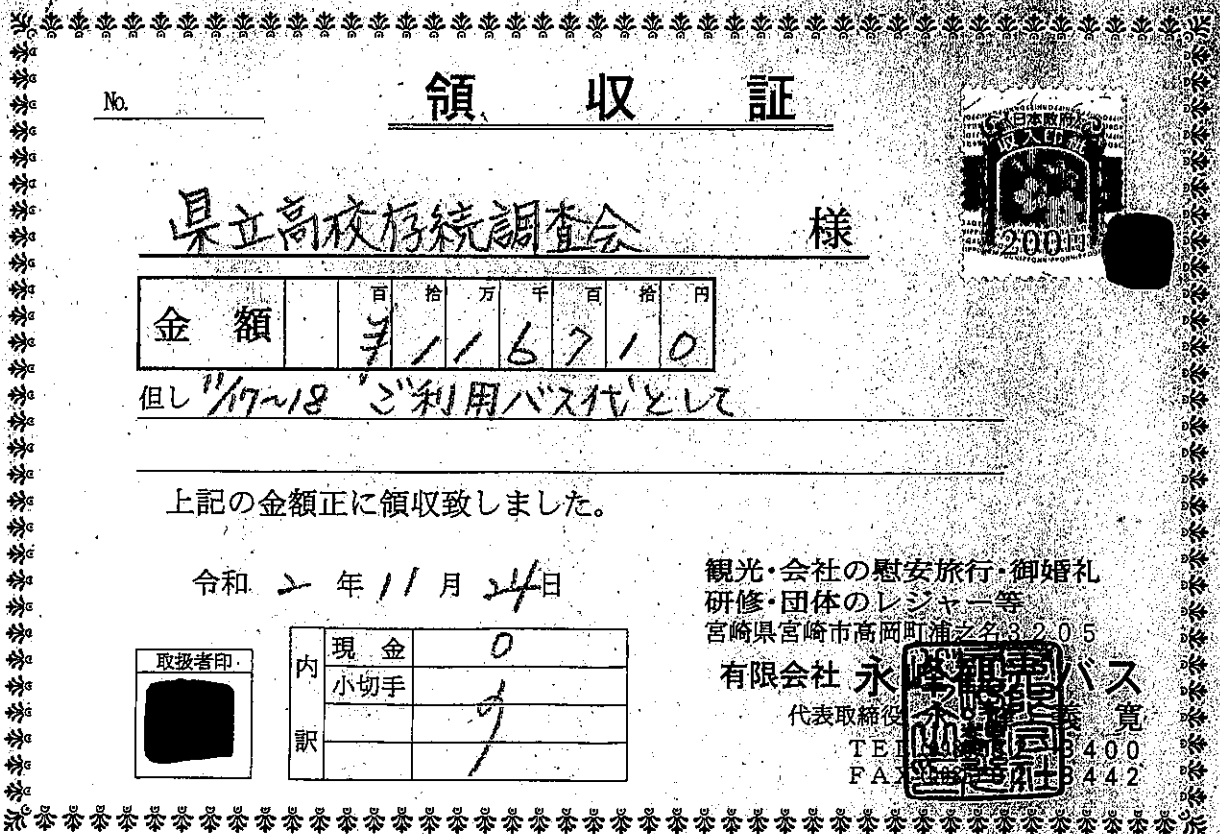 No.
領収証
日本政府
収入印紙
200円
県立高校存続調査会 様
金額 百 拾 万 千 百 拾 円
¥116710
但し 11/17~18 ご利用バス代として
上記の金額正に領収致しました。
令和 2 年 11 月 24 日
取扱者印
内訳
現金 0
小切手
観光・会社の慰安旅行・御婚礼
研修・団体のレジャー等
宮崎県宮崎市高岡町浦之名3205
有限会社 永峰観光バス
代表取締役 永 義寛
TEL 3400
FAX 3442